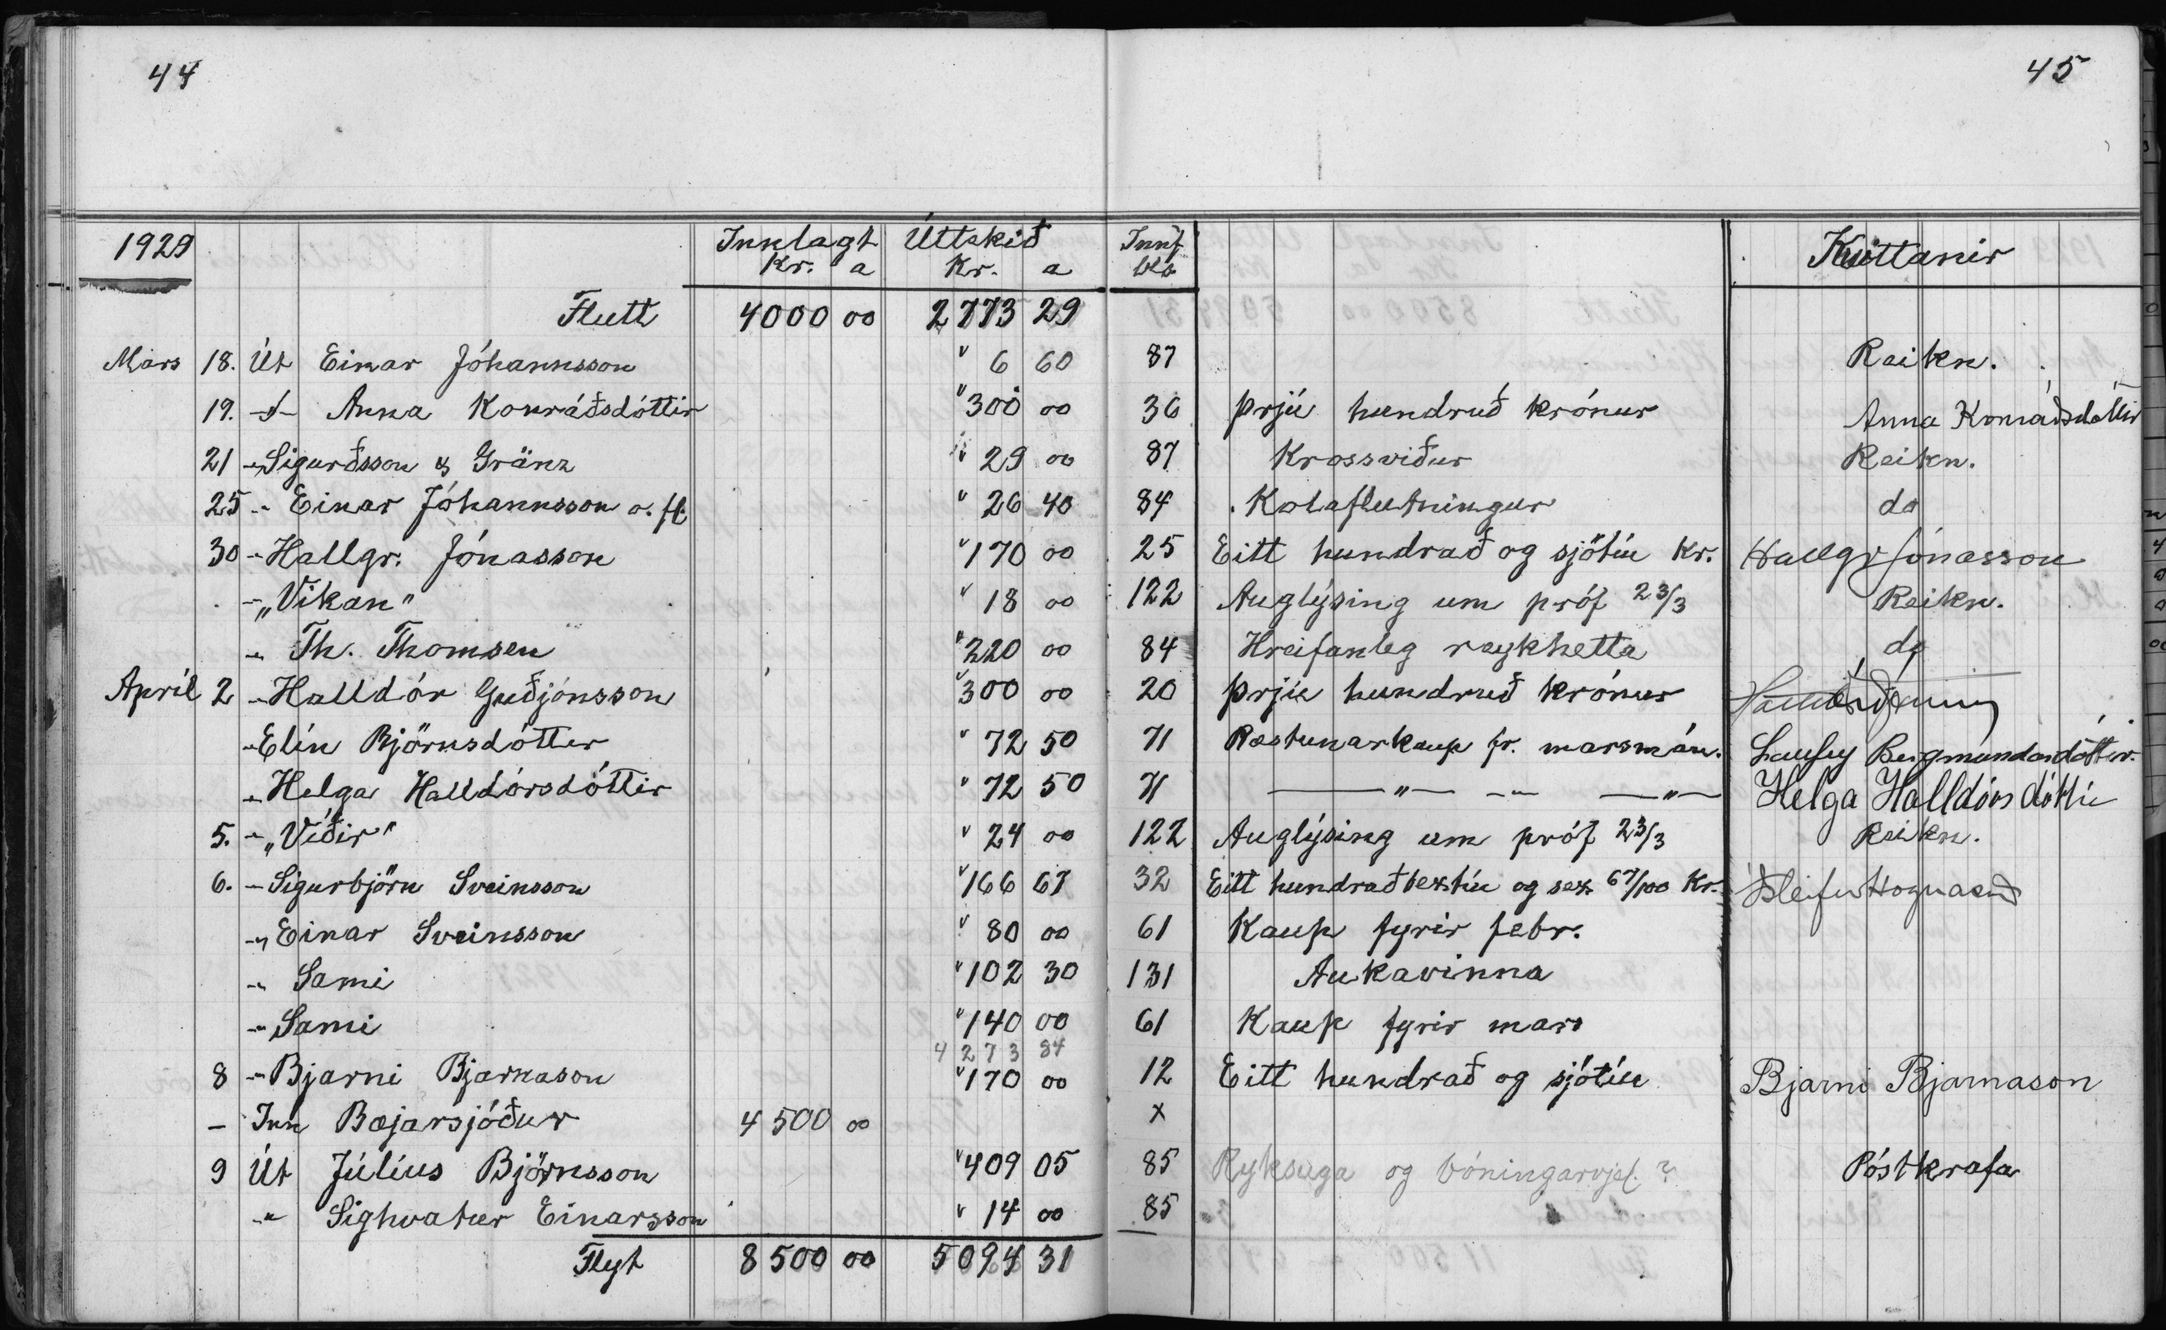 44 45
1929 Innlagt Úttekið Innf. Kvittanir
Kr. a Kr. a bls
Flutt 4000 00 2773 29
Mars 18. Út Einar Jóhannsson " 6 60 87 Reikn.
19. -"- Anna Konráðsdóttir " 300 00 36 þrjú hundruð krónur Anna Konráðsdóttir
21 -"- Sigurðsson & Gränz " 29 00 87 Krossviður Reikn.
25 -"- Einar Jóhannsson o. fl. " 26 40 84 Kolaflutningur do
30 -"- Hallgr. Jónasson " 170 00 25 Eitt hundrað og sjötíu Kr. Hallgr Jónasson
-"- „Vikan" " 18 00 122 Auglýsing um próf 23/3 Reikn.
-"- Th. Thomsen " 220 00 84 Hreifanleg reykhetta do
Apríl 2 -"- Halldór Guðjónsson " 300 00 20 þrjú hundruð krónur
-"- Elín Björnsdóttir " 72 50 71 Ræstunarkaup fr. marsmán. Laufey Bergmundardóttir.
-"- Helga Halldórsdóttir " 72 50 71 —"— -"- —"— Helga Halldórsdóttir
5. -"- „Víðir" " 24 00 122 Auglýsing um próf 23/3 Reikn.
6. -"- Sigurbjörn Sveinsson " 166 67 32 Eitt hundrað sextíu og sex 67/100 Kr.
-"- Einar Sveinsson " 80 00 61 Kaup fyrir febr.
-"- Sami " 102 30 131 Aukavinna
-"- Sami " 140 00 61 Kaup fyrir mars
4273 84
8 -"- Bjarni Bjarnason " 170 00 12 Eitt hundrað og sjötíu Bjarni Bjarnason
- Inn Bæjarsjóður 4500 00 x
9 Út Júlíus Björnsson " 409 05 85 Ryksuga og bóningarvjel. ? Póstkrafa
-"- Sighvatur Einarsson " 14 00 85
Flyt 8500 00 5094 31